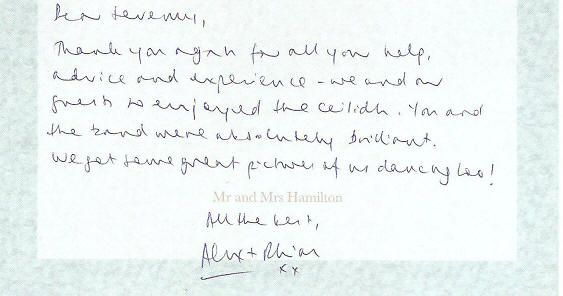 Dear
Thank you again for all your help,
advice and experience - we and our
guests so enjoyed the ceilidh. You and
the band were absolutely brilliant.
We got some great pictures of us dancing too!
Mr and Mrs Hamilton
All the best,
Alex + Rhian
xx